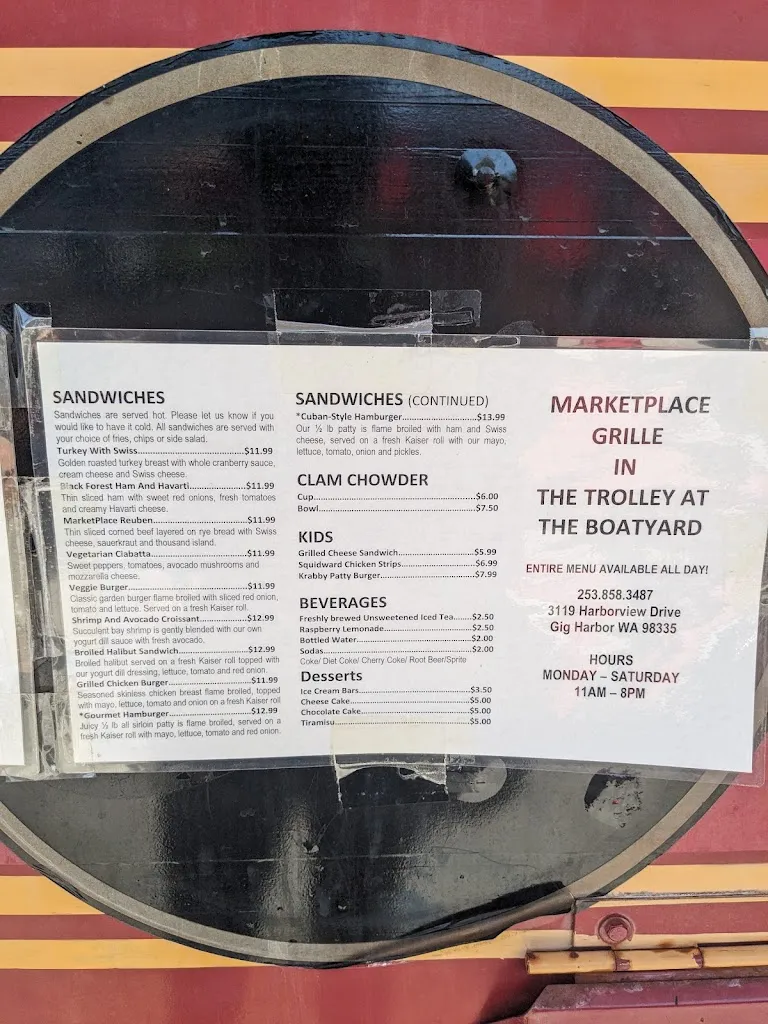 SANDWICHES
Sandwiches are served hot. Please let us know if you
would like to have it cold. All sandwiches are served with
your choice of fries, chips or side salad.
Turkey With Swiss............................................$11.99
Golden roasted turkey breast with whole cranberry sauce,
cream cheese and Swiss cheese.
Black Forest Ham And Havarti...................$11.99
Thin sliced ham with sweet red onions, fresh tomatoes
and creamy Havarti cheese.
MarketPlace Reuben........................................$11.99
Thin sliced corned beef layered on rye bread with Swiss
cheese, sauerkraut and thousand island.
Vegetarian Ciabatta.........................................$11.99
Sweet peppers, tomatoes, avocado mushrooms and
mozzarella cheese.
Veggie Burger................................................$11.99
Classic garden burger flame broiled with sliced red onion,
tomato and lettuce. Served on a fresh Kaiser roll.
Shrimp And Avocado Croissant................$12.99
Succulent bay shrimp is gently blended with our own
yogurt dill sauce with fresh avocado.
Broiled Halibut Sandwich........................$12.99
Broiled halibut served on a fresh Kaiser roll topped with
our yogurt dill dressing, lettuce, tomato and red onion.
Grilled Chicken Burger............................$11.99
Seasoned skinless chicken breast flame broiled, topped
with mayo, lettuce, tomato and onion on a fresh Kaiser roll
*Gourmet Hamburger...........................$12.99
Juicy ½ lb all sirloin patty is flame broiled, served on a
fresh Kaiser roll with mayo, lettuce, tomato and red onion.
SANDWICHES (CONTINUED)
*Cuban-Style Hamburger..........................$13.99
Our ½ lb patty is flame broiled with ham and Swiss
cheese, served on a fresh Kaiser roll with our mayo,
lettuce, tomato, onion and pickles.
CLAM CHOWDER
Cup......................................................$6.00
Bowl....................................................$7.50
KIDS
Grilled Cheese Sandwich..........................$5.99
Squidward Chicken Strips.........................$6.99
Krabby Patty Burger...............................$7.99
BEVERAGES
Freshly brewed Unsweetened Iced Tea......$2.50
Raspberry Lemonade...............................$2.50
Bottled Water........................................$2.00
Sodas...................................................$2.00
Coke/ Diet Coke/ Cherry Coke/ Root Beer/Sprite
Desserts
Ice Cream Bars.......................................$3.50
Cheese Cake..........................................$5.00
Chocolate Cake......................................$5.00
Tiramisu...............................................$5.00
MARKETPLACE
GRILLE
IN
THE TROLLEY AT
THE BOATYARD
ENTIRE MENU AVAILABLE ALL DAY!
253.858.3487
3119 Harborview Drive
Gig Harbor WA 98335
HOURS
MONDAY – SATURDAY
11AM – 8PM